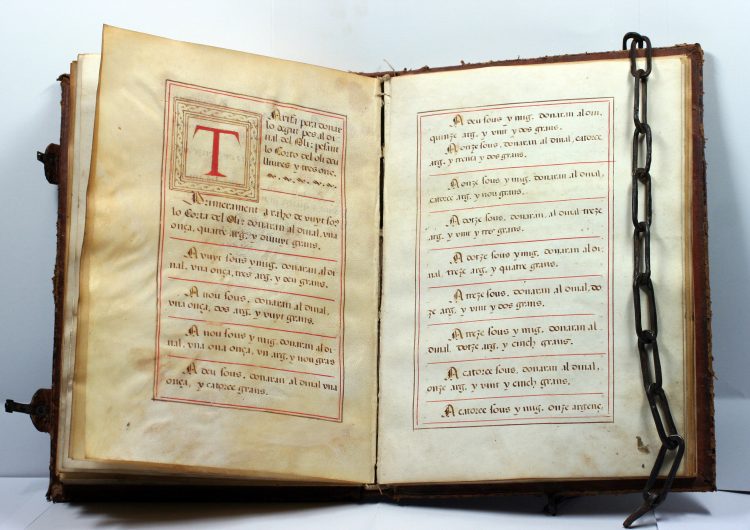 Tarifa pera donar
lo degut pes al di-
nal del Oli; pesant
lo Corto del oli deu
lliures y tres onc.
Primerament a raho de vuyt sous
lo Corta del Oli: donaran al dinal, vna
onça, quatre arg. y divuyt grans.
A vuyt sous y mig, donaran al di
nal, vna onça, tres arg. y deu grans.
A nou sous, donaran al dinal,
vna onça, dos arg. y vuyt grans.
A nou sous y mig, donaran al di
nal, vna onça, vn arg. y nou grãs
A deu sous, donaran al dinal vna
onça, y catorce grans.
A deu sous y mig, donaran al dinal,
quinze arg. y vint y dos grans.
A onze sous, donaran al dinal, catorce
arg. y trenta y dos grans.
A onze sous y mig donaran al dinal,
catorce arg. y nou grans.
A dotze sous, donaran al dinal tretze
arg. y vint y tre grans.
A dotze sous y mig, donaran al di-
nal, tretze arg. y quatre grans.
A tretze sous, donaran al dinal, do
tze arg. y vint y dos grans.
A tretze sous y mig, donaran al
dinal dotze arg. y cinch grans.
A catorce sous, donaran al dinal,
onze arg. y vint y cinch grans.
A catorce sous y mig, onze argenç.